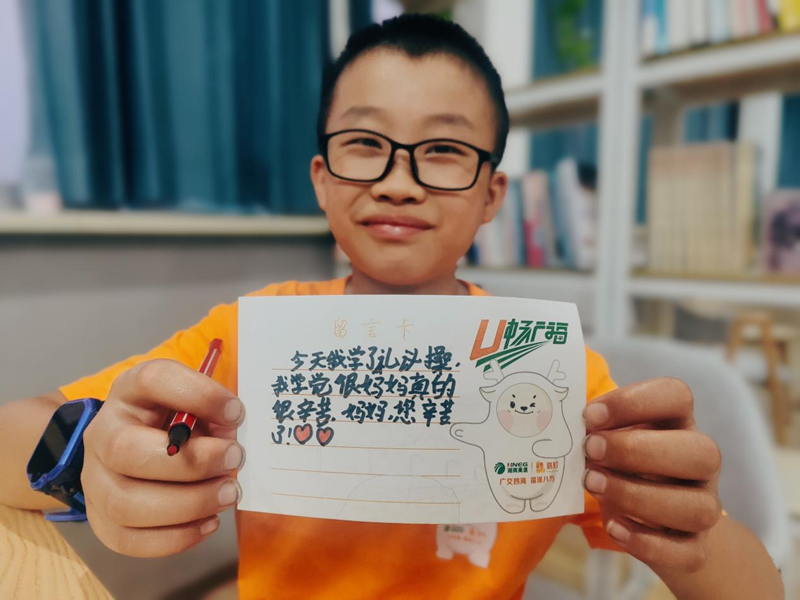 留言卡
今天我学了礼操，
我学觉很妈妈真的
很辛苦，妈妈，您辛苦
了！
U畅广福
HNEG
湖南高速
广交四海 福泽八方